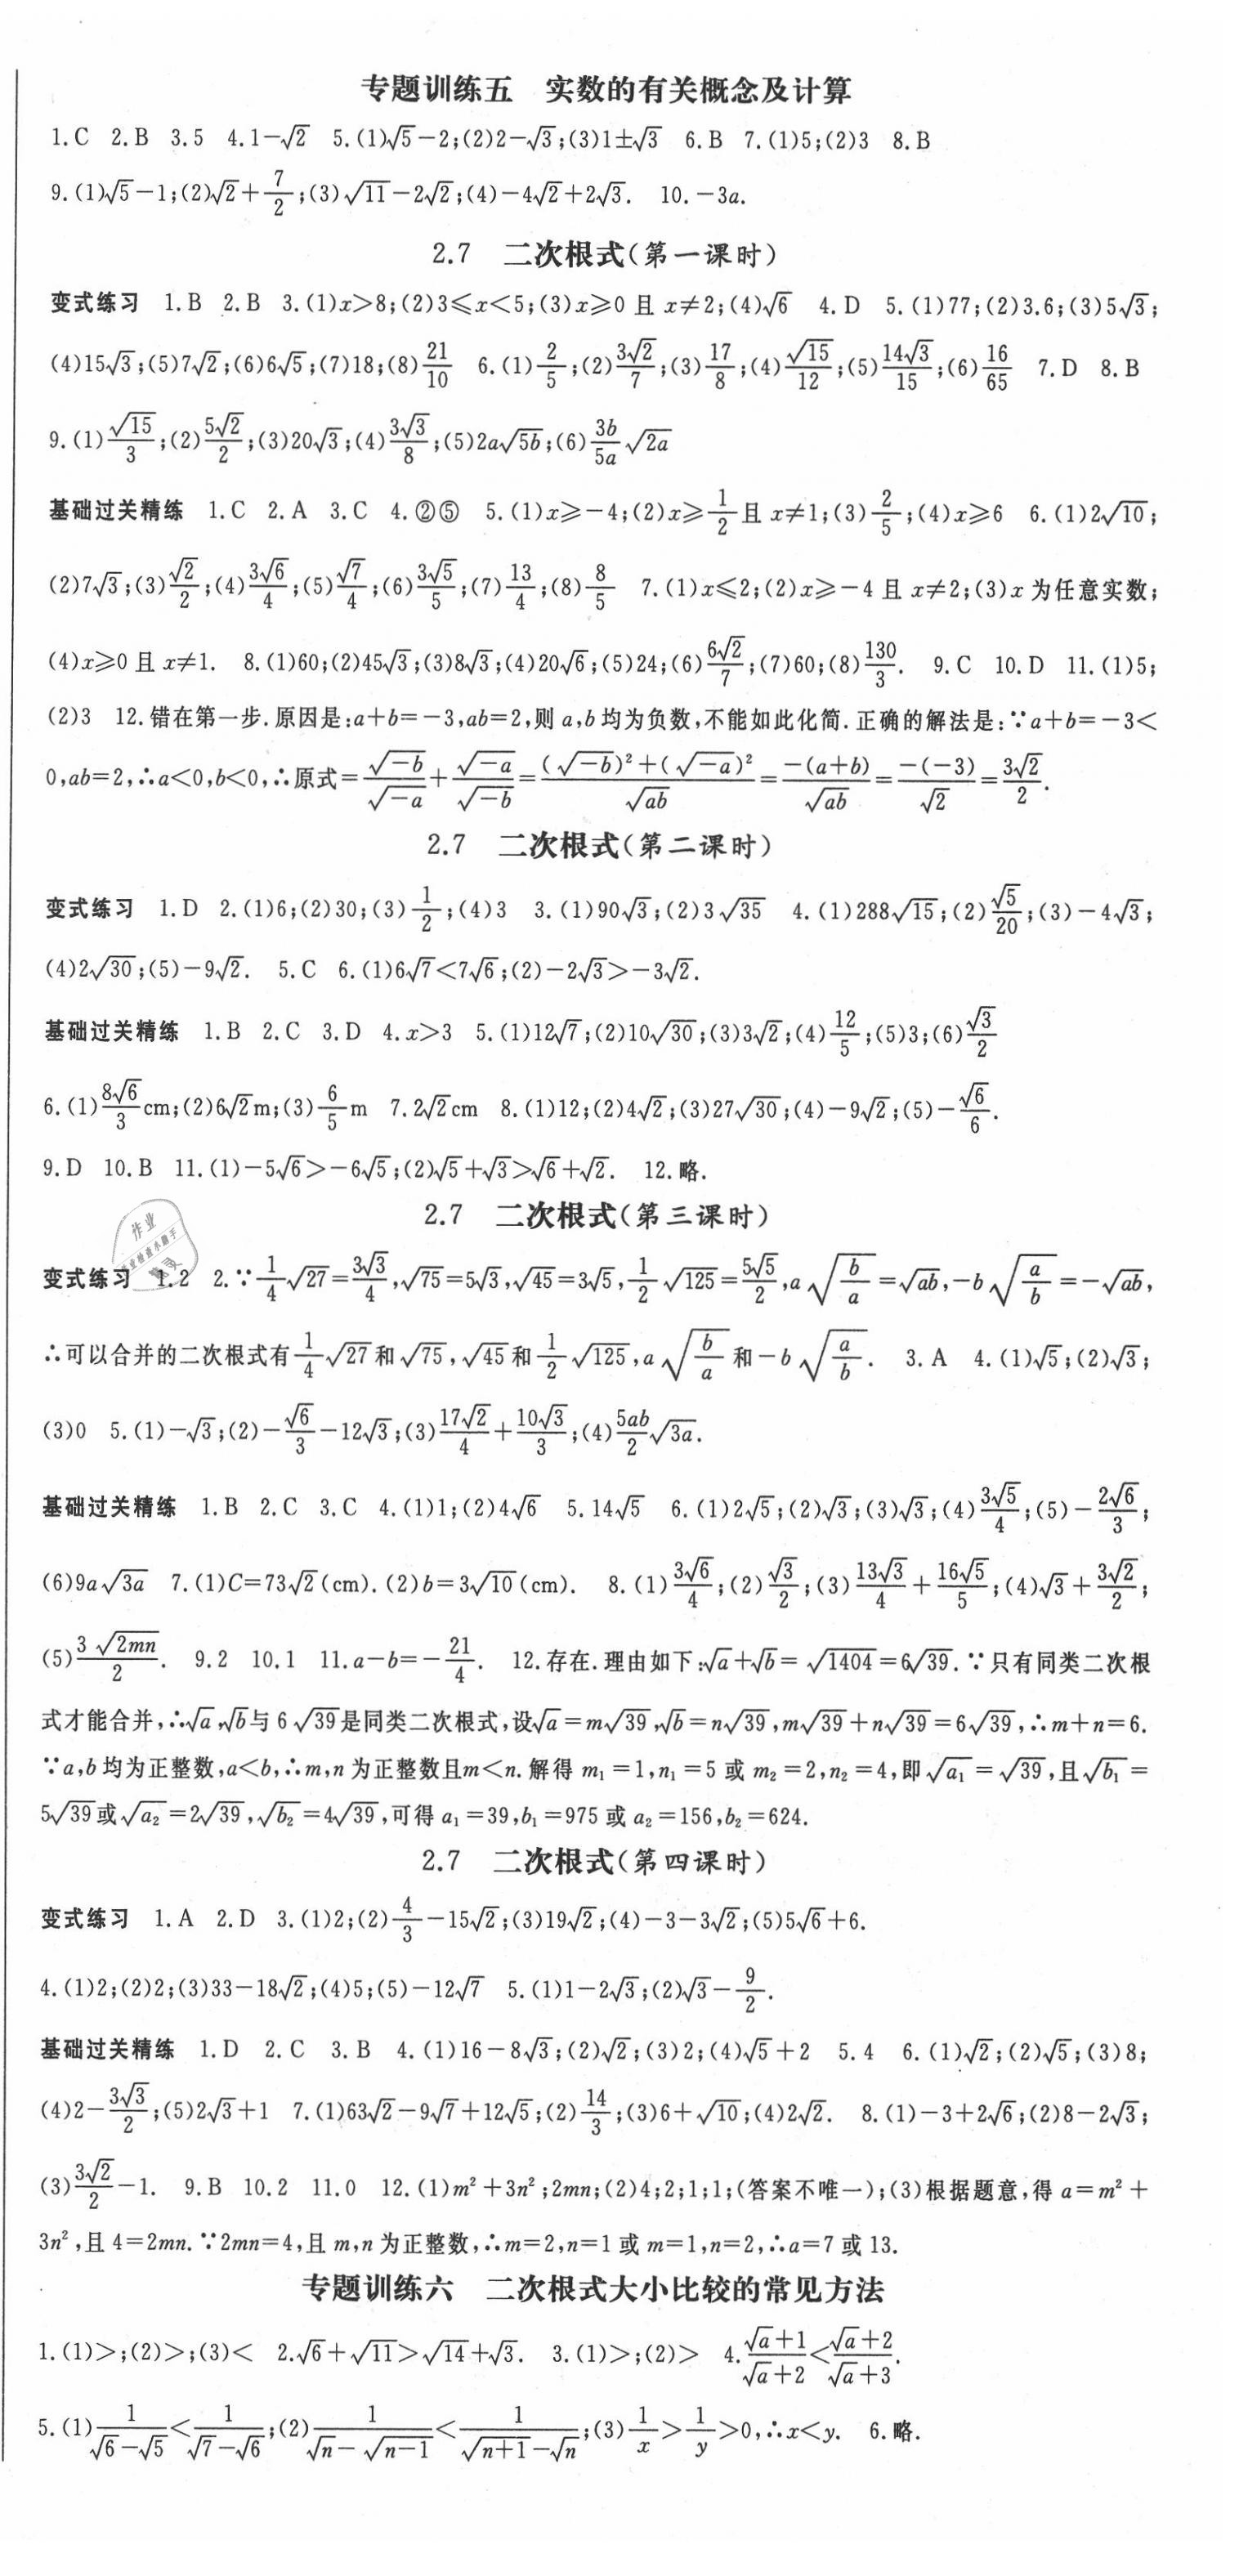 专题训练五 实数的有关概念及计算
1.C 2.B 3.5 4.1-√2 5.(1)√5-2;(2)2-√3;(3)1±√3 6.B 7.(1)5;(2)3 8.B
9.(1)√5-1;(2)√2+7/2;(3)√11-2√2;(4)-4√2+2√3. 10.-3a.
2.7 二次根式(第一课时)
变式练习 1.B 2.B 3.(1)x>8;(2)3≤x<5;(3)x≥0 且 x≠2;(4)√6 4.D 5.(1)77;(2)3.6;(3)5√3;
(4)15√3;(5)7√2;(6)6√5;(7)18;(8)21/10 6.(1)2/5;(2)3√2/7;(3)17/8;(4)√15/12;(5)14√3/15;(6)16/65 7.D 8.B
9.(1)√15/3;(2)5√2/2;(3)20√3;(4)3√3/8;(5)2a√5b;(6)3b/5a √2a
基础过关精练 1.C 2.A 3.C 4.②⑤ 5.(1)x≥-4;(2)x≥1/2且 x≠1;(3)2/5;(4)x≥6 6.(1)2√10;
(2)7√3;(3)√2/2;(4)3√6/4;(5)√7/4;(6)3√5/5;(7)13/4;(8)8/5 7.(1)x≤2;(2)x≥-4 且 x≠2;(3)x 为任意实数;
(4)x≥0 且 x≠1. 8.(1)60;(2)45√3;(3)8√3;(4)20√6;(5)24;(6)6√2/7;(7)60;(8)130/3. 9.C 10.D 11.(1)5;
(2)3 12.错在第一步.原因是:a+b=-3,ab=2,则 a,b 均为负数,不能如此化简.正确的解法是:∵a+b=-3<
0,ab=2,∴a<0,b<0,∴原式=√(-b)/√(-a)+√(-a)/√(-b)=((√(-b))²+(√(-a))²)/√ab=-(a+b)/√ab=-(-3)/√2=3√2/2.
2.7 二次根式(第二课时)
变式练习 1.D 2.(1)6;(2)30;(3)1/2;(4)3 3.(1)90√3;(2)3√35 4.(1)288√15;(2)√5/20;(3)-4√3;
(4)2√30;(5)-9√2. 5.C 6.(1)6√7<7√6;(2)-2√3>-3√2.
基础过关精练 1.B 2.C 3.D 4.x>3 5.(1)12√7;(2)10√30;(3)3√2;(4)12/5;(5)3;(6)√3/2
6.(1)8√6/3cm;(2)6√2m;(3)6/5m 7.2√2cm 8.(1)12;(2)4√2;(3)27√30;(4)-9√2;(5)-√6/6.
9.D 10.B 11.(1)-5√6>-6√5;(2)√5+√3>√6+√2. 12.略.
2.7 二次根式(第三课时)
变式练习 1.2 2.∵1/4√27=3√3/4,√75=5√3,√45=3√5,1/2√125=5√5/2,a√(b/a)=√ab,-b√(a/b)=-√ab,
∴可以合并的二次根式有1/4√27和√75,√45和1/2√125,a√(b/a)和-b√(a/b). 3.A 4.(1)√5;(2)√3;
(3)0 5.(1)-√3;(2)-√6/3-12√3;(3)17√2/4+10√3/3;(4)5ab/2√3a.
基础过关精练 1.B 2.C 3.C 4.(1)1;(2)4√6 5.14√5 6.(1)2√5;(2)√3;(3)√3;(4)3√5/4;(5)-2√6/3;
(6)9a√3a 7.(1)C=73√2(cm).(2)b=3√10(cm). 8.(1)3√6/4;(2)√3/2;(3)13√3/4+16√5/5;(4)√3+3√2/2;
(5)3√2mn/2. 9.2 10.1 11.a-b=-21/4. 12.存在.理由如下:√a+√b=√1404=6√39.∵只有同类二次根
式才能合并,∴√a,√b与 6√39是同类二次根式,设√a=m√39,√b=n√39,m√39+n√39=6√39,∴m+n=6.
∵a,b 均为正整数,a<b,∴m,n 为正整数且m<n.解得 m₁=1,n₁=5 或 m₂=2,n₂=4,即√a₁=√39,且√b₁=
5√39或√a₂=2√39,√b₂=4√39,可得 a₁=39,b₁=975 或 a₂=156,b₂=624.
2.7 二次根式(第四课时)
变式练习 1.A 2.D 3.(1)2;(2)4/3-15√2;(3)19√2;(4)-3-3√2;(5)5√6+6.
4.(1)2;(2)2;(3)33-18√2;(4)5;(5)-12√7 5.(1)1-2√3;(2)√3-9/2.
基础过关精练 1.D 2.C 3.B 4.(1)16-8√3;(2)√2;(3)2;(4)√5+2 5.4 6.(1)√2;(2)√5;(3)8;
(4)2-3√3/2;(5)2√3+1 7.(1)63√2-9√7+12√5;(2)14/3;(3)6+√10;(4)2√2. 8.(1)-3+2√6;(2)8-2√3;
(3)3√2/2-1. 9.B 10.2 11.0 12.(1)m²+3n²;2mn;(2)4;2;1;1;(答案不唯一);(3)根据题意,得 a=m²+
3n²,且 4=2mn.∵2mn=4,且 m,n 为正整数,∴m=2,n=1 或 m=1,n=2,∴a=7 或 13.
专题训练六 二次根式大小比较的常见方法
1.(1)>;(2)>;(3)< 2.√6+√11>√14+√3. 3.(1)>;(2)> 4.(√a+1)/(√a+2)<(√a+2)/(√a+3).
5.(1)1/(√6-√5)<1/(√7-√6);(2)1/(√n-√(n-1))<1/(√(n+1)-√n);(3)1/x>1/y>0,∴x<y. 6.略.